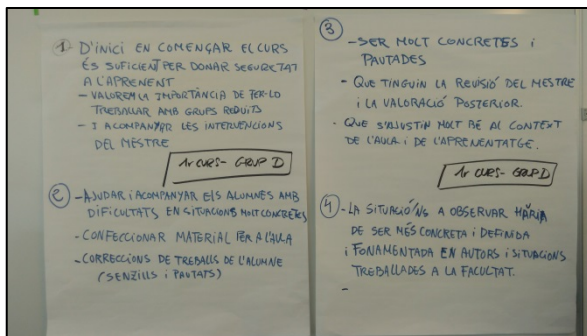 1. D'INICI EN COMENÇAR EL CURS
ÉS SUFICIENT PER DONAR SEGURETAT
A L'APRENENT
- VALOREM LA IMPORTÀNCIA DE FER-LO
TREBALLAR AMB GRUPS REDUITS
- I ACOMPANYAR LES INTERVENCIONS
DEL MESTRE
1r CURS - GRUP D
2 - AJUDAR I ACOMPANYAR ELS ALUMNES AMB
DIFICULTATS EN SITUACIONS MOLT CONCRETES
- CONFECCIONAR MATERIAL PER A L'AULA
- CORRECCIONS DE TREBALLS DE L'ALUMNE
(SENZILLS I PAUTATS)
3
- SER MOLT CONCRETES I
PAUTADES
- QUE TINGUIN LA REVISIÓ DEL MESTRE
I LA VALORACIÓ POSTERIOR.
- QUE S'AJUSTIN MOLT BÉ AL CONTEXT
DE L'AULA I DE L'APRENENTATGE.
1r CURS - GRUP D
4 - LA SITUACIÓ/NS A OBSERVAR HAURIA
DE SER MÉS CONCRETA I DEFINIDA
I FONAMENTADA EN AUTORS I SITUACIONS
TREBALLADES A LA FACULTAT.
-